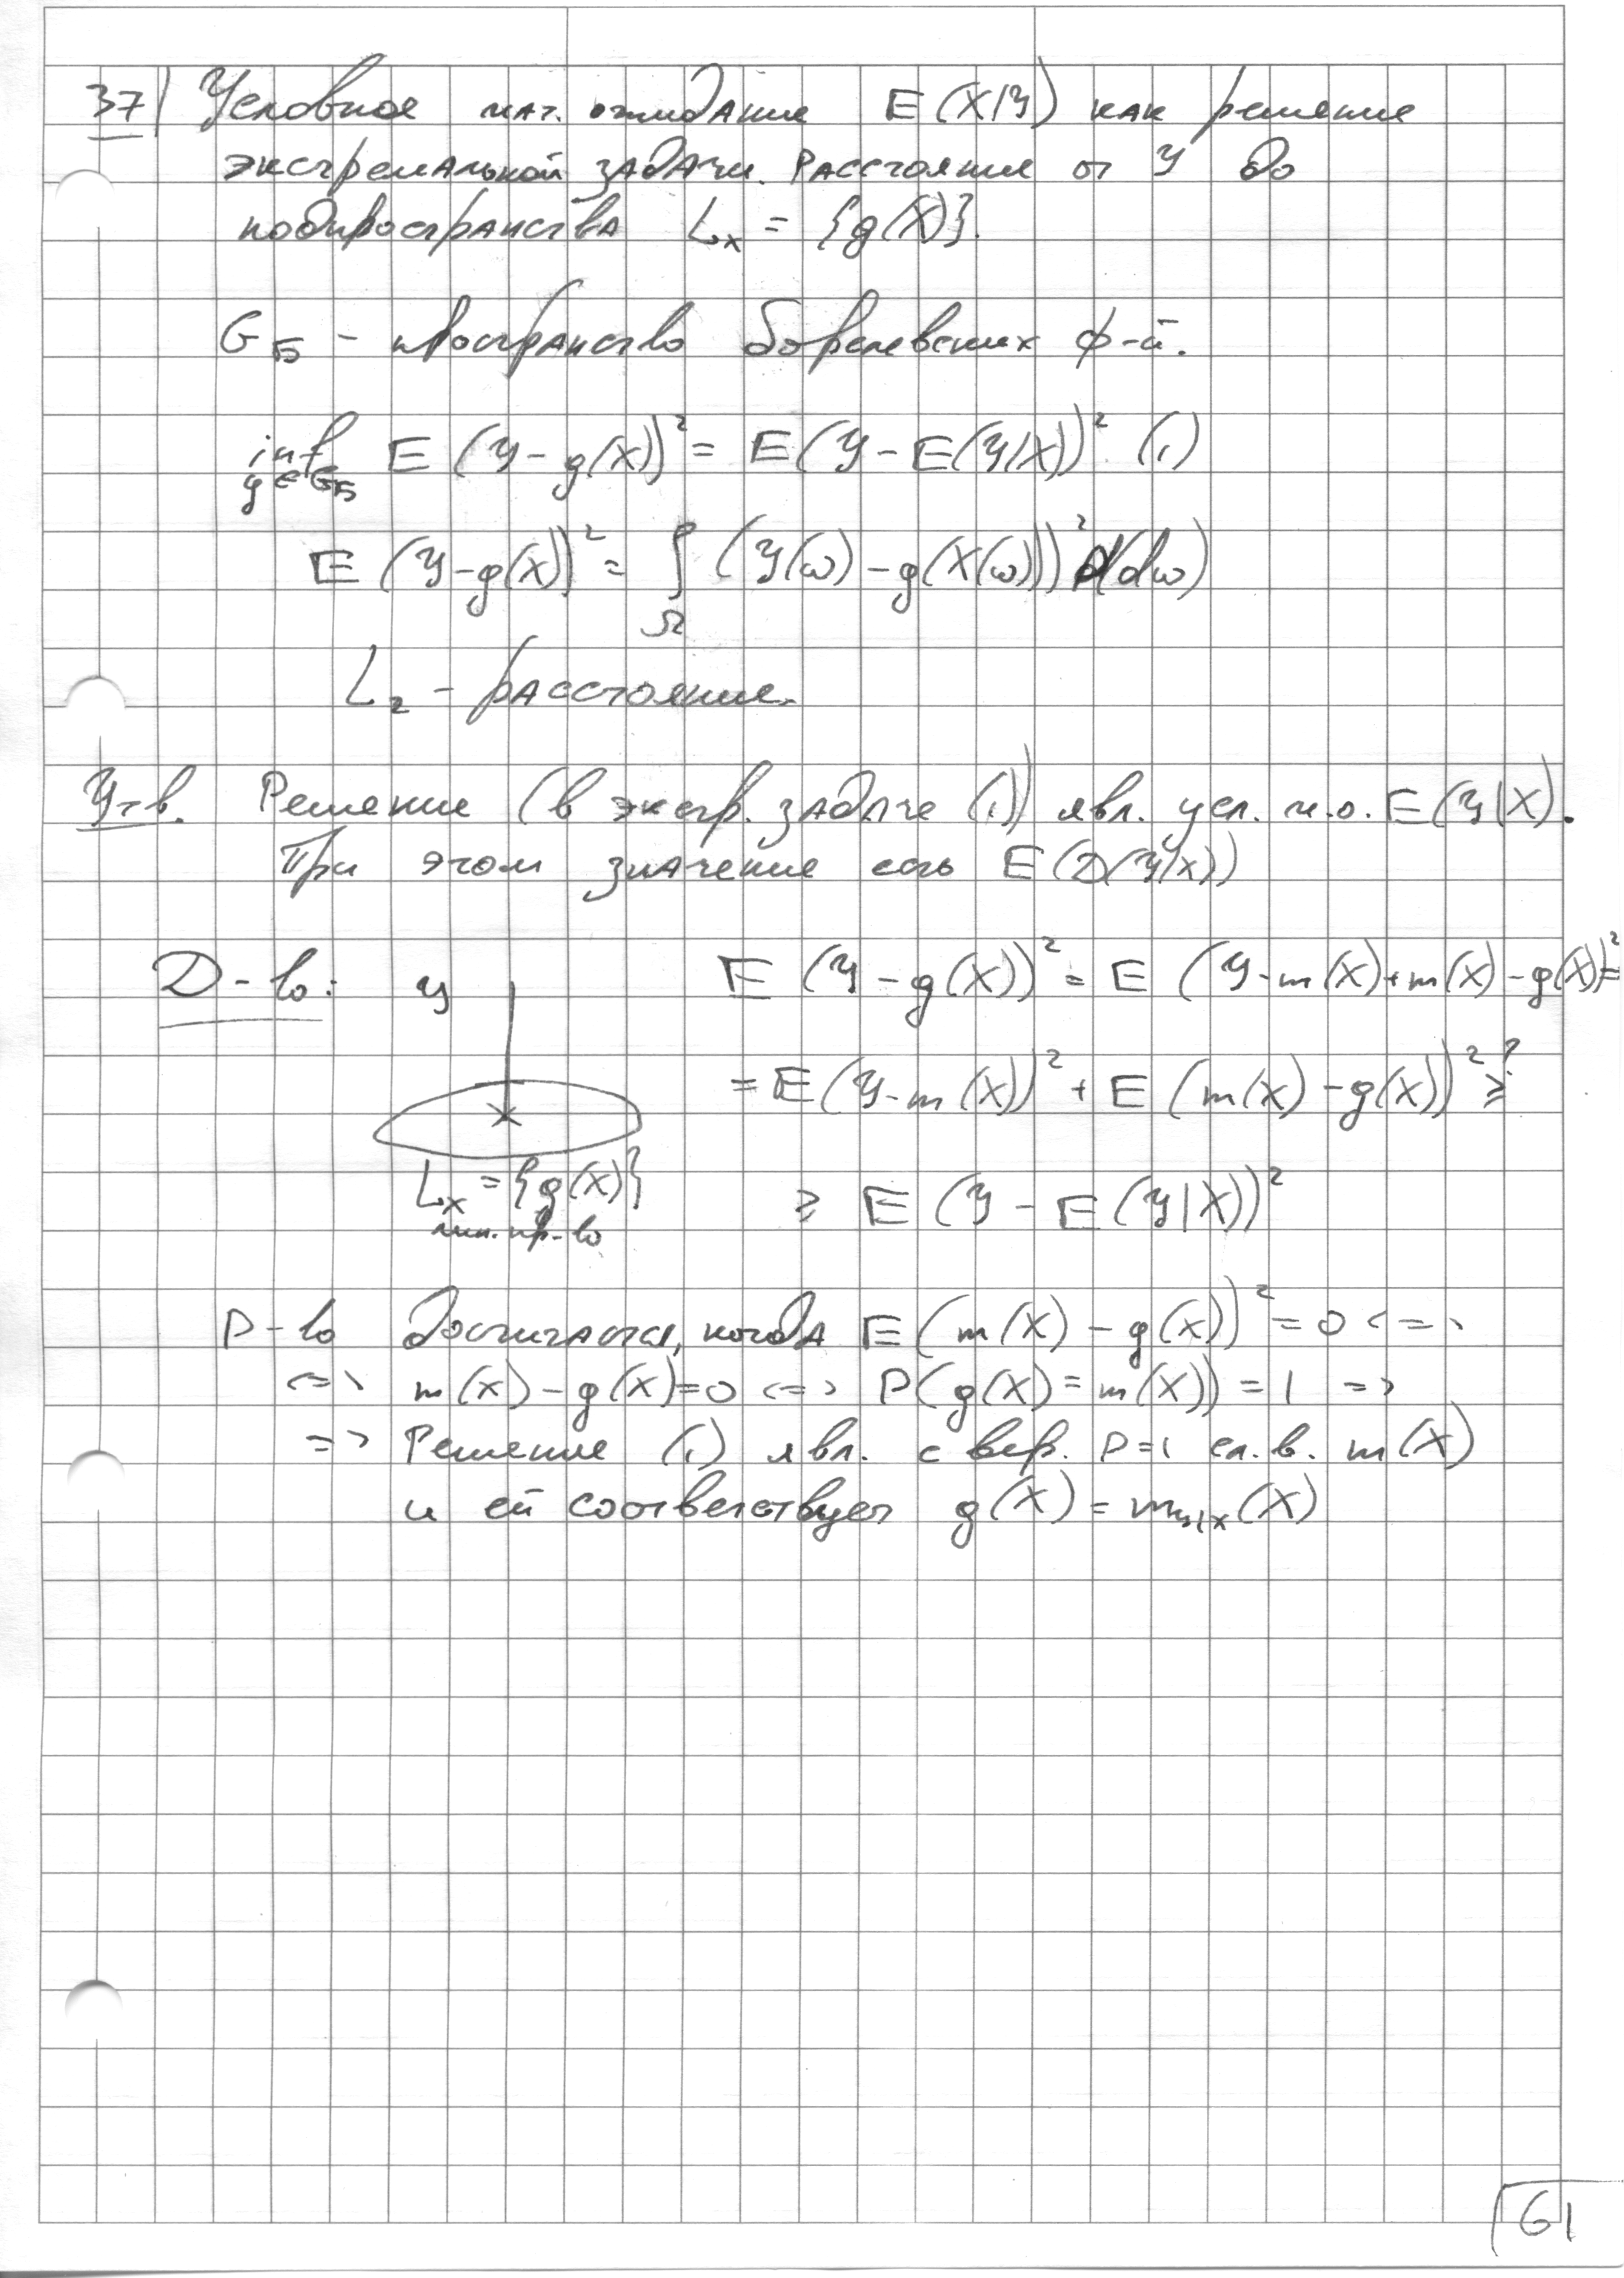 37) Условное мат. ожидание E(X|Y) как решение
экстремальной задачи. Расстояние от Y до
подпространства Lx = {g(X)}.
G_Б - пространство борелевских ф-й.
inf E (Y - g(X))² = E(Y - E(Y|X))² (1)
g∈G_Б
E (Y - g(X))² = ∫ (Y(ω) - g(X(ω)))² (dω)
Ω
L₂ - расстояние.
Утв. Решение (в экстр. задаче (1)) явл. усл. м.о. E(Y|X).
При этом значение есть E(D(Y|X))
Д-во: Y E (Y - g(X))² = E (Y - m(X) + m(X) - g(X))² =
= E(Y - m(X))² + E (m(X) - g(X))² ≥?
Lx = {g(X)} ≥ E (Y - E(Y|X))²
лин. пр-во
Р-во достигается, когда E(m(X) - g(X))² = 0 <=>
<=> m(X) - g(X) = 0 <=> P(g(X) = m(X)) = 1 =>
=> Решение (1) явл. с вер. P=1 сл.в. m(X)
и ей соответствует g(X) = m_Y|X(X)
61